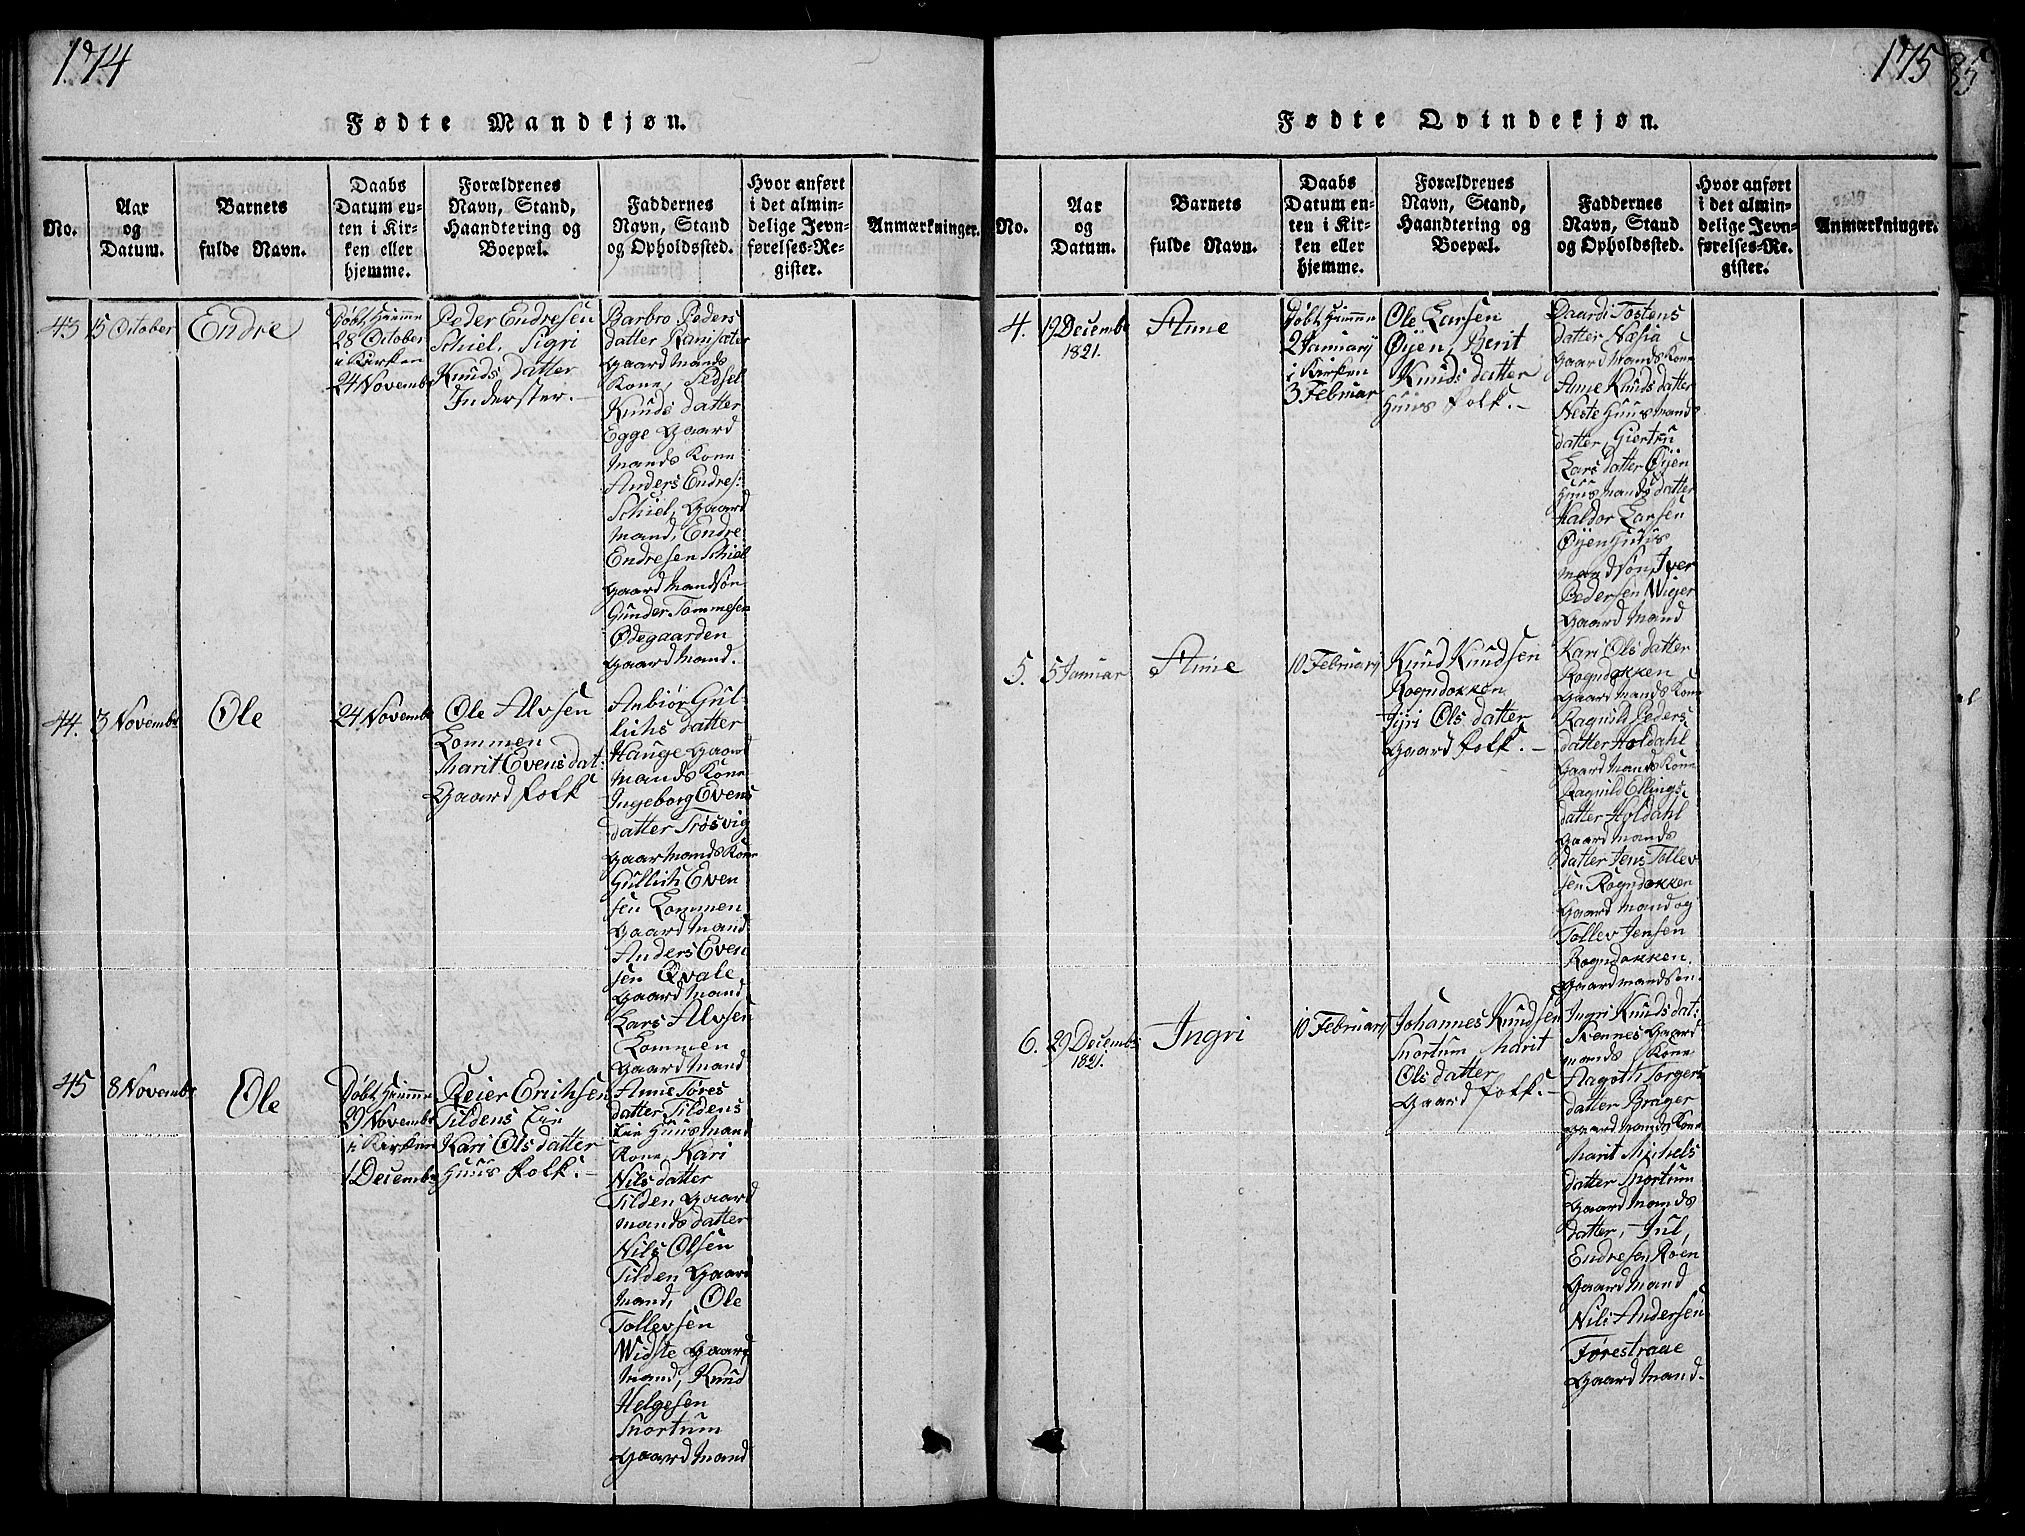 174
Fødte Mandkjøn.
No.
Aar
og
Datum.
Barnets
fulde Navn.
Daabs
Datum en-
ten i Kir-
ken eller
hjemme.
Forældrenes
Navn, Stand,
Haandtering og
Boepæl.
Faddernes
Navn, Stand
og Opholdssted.
Hvor anført
i det almin-
delige Jevn-
førelses-Re-
gister.
Anmærkninger.
43
15 October
Endre
Døbt Hiemme
28 October
i Kirken
24 Novembr
Peder Endresen
Schiel, Sigri
Knuds datter
Inderster.-
Barbro Peders
datter Ramsåter
Gaard Mands
Kone, Sidsel
Knuds datter
Egge Gaard
Mands Kone
Anders Endres:
Schiel, Gaard
Mand, Endre
Endresen Schiel
Gaard Mandsøn
Gunder Tommesen
Ødegaarden
Gaard Mand.
44.
3 Novembr
Ole
24 Novembr
Ole Alvsen
Lommen
Marit Evens dat:
Gaard folk
Anbiør Gul-
lichs datter
Hauge Gaard
Mands Kone
Ingeborg Evens
datter Trøsvig
Gaar Mands Kone
Gullich Even
sen Lommen
Gaard Mand
Anders Even
sen Qvale
Gaard Mand
Lars Alvsen
Lommen
Gaard Mand
45
8 Novembr
Ole
Døbt Hiemme
29 Novembr
i Kirken
1 Decembr
Reier Erichsen
Tildens Eie
Kari Ols datter
Huus folk.-
Anne Tores
datter Tildens
Eie Huus Mand
Kone, Kari
Nils datter
Tilden Gaard
Mands datter
Nils Olsen
Tilden Gaard
Mand, Ole
Tollevsen
Widste Gaard
Mand, Knud
Helgesen
Snortum
Gaard Mand
175
85
Fødte Qvindekjøn.
No.
Aar
og
Datum.
Barnets
fulde Navn.
Daabs
Datum en-
ten i Kir-
ken eller
hjemme.
Forældrenes
Navn, Stand,
Haandtering og
Boepæl.
Faddernes
Navn, Stand
og Opholdssted.
Hvor anført
i det almin-
delige Jevn-
førelses-Re-
gister.
Anmærkninger.
4.
19 Decembr
1821.
Anne
Døbt Hiemme
2 Januarij
i Kirken
3 Februar
Ole Larsen
Øijen, Berit
Knuds datter
Huus folk.-
Daardi Tostens
datter Næsia
Gaard Mands Kone
Anne Knuds datter
Neste Huus mands
datter, Giertru
Lars datter Øijen
Huus Mands datter
Haldor Larsen
Øijen Huus
mand søn, Iver
Pedersen, Wiger
Gaard Mand
5.
5 Januar
Anne
10 Februarij
Knud Knudsen
Rogndokken
Sijri Ols datter
Gaard folk.-
Kari Ols datter
Rogndokken
Gaard Mands Kone
Ragnild Peders
datter Holdahl
Gaard Mands Kone
Ragnild Ellings
datter Holdahl
Gaard Mands
datter Jens Tollev
sen Rogndokken
Gaard Mand og
Tollev Jensen
Rogndokken
Gaard mandsøn.
6.
29 Decembr
1821.
Ingri
10 Februarij
Johannes Knudsen
Snortum Marit
Ols datter
Gaard folk.-
Ingri Knuds dat:
Skennes Gaard
mands Kone
Aagoth Torgers
datter Brager
Gaard Mands Kone
Marit Michels
datter Snortum
Gaard Mands
datter,- Jul,
Endresen Røen
Gaard Mand
Nils Andersen
Førestraae
Gaard Mand.